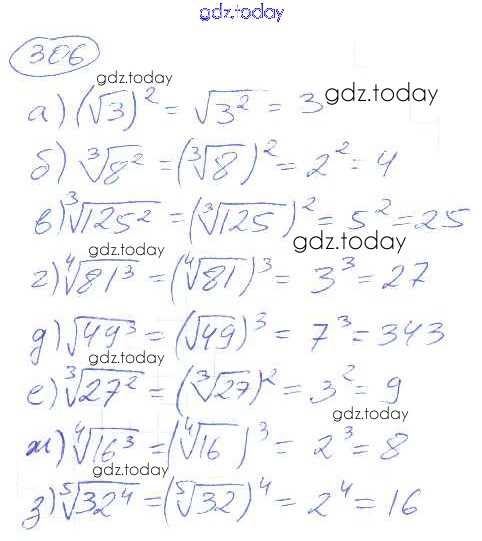 gdz.today
306
gdz.today
а) (√3)² = √3² = 3 gdz.today
б) ∛8² = (∛8)² = 2² = 4
в) ∛125² = (∛125)² = 5² = 25
gdz.today
г) ∜81³ = (∜81)³ = 3³ = 27
д) √49³ = (√49)³ = 7³ = 343
gdz.today
е) ∛27² = (∛27)² = 3² = 9
gdz.today
ж) ∜16³ = (∜16)³ = 2³ = 8
gdz.today
з) ⁵√32⁴ = (⁵√32)⁴ = 2⁴ = 16